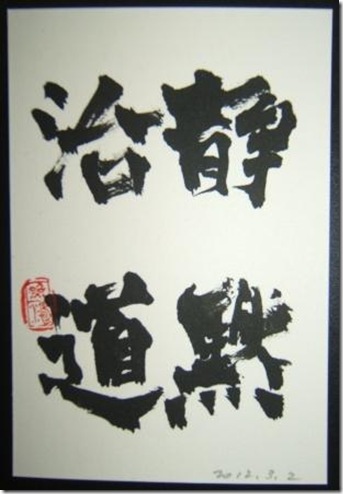 静黙
治道
2012.3.2